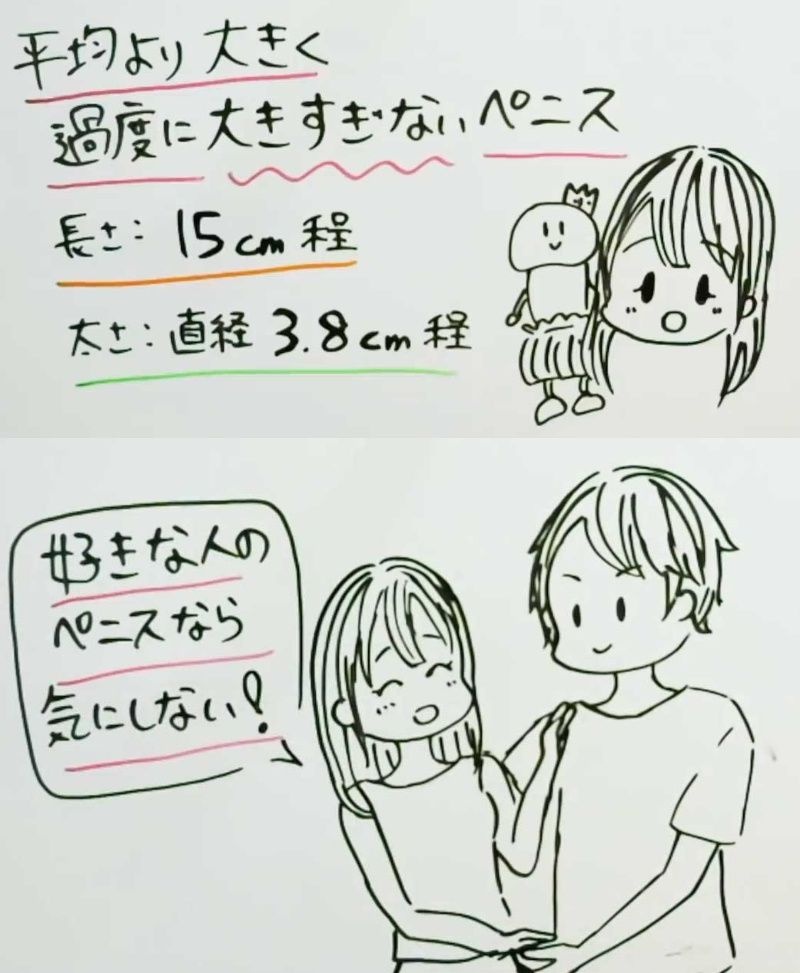 平均より大きく
過度に大きすぎないペニス
長さ：15cm程
太さ：直径3.8cm程
好きな人の
ペニスなら
気にしない！